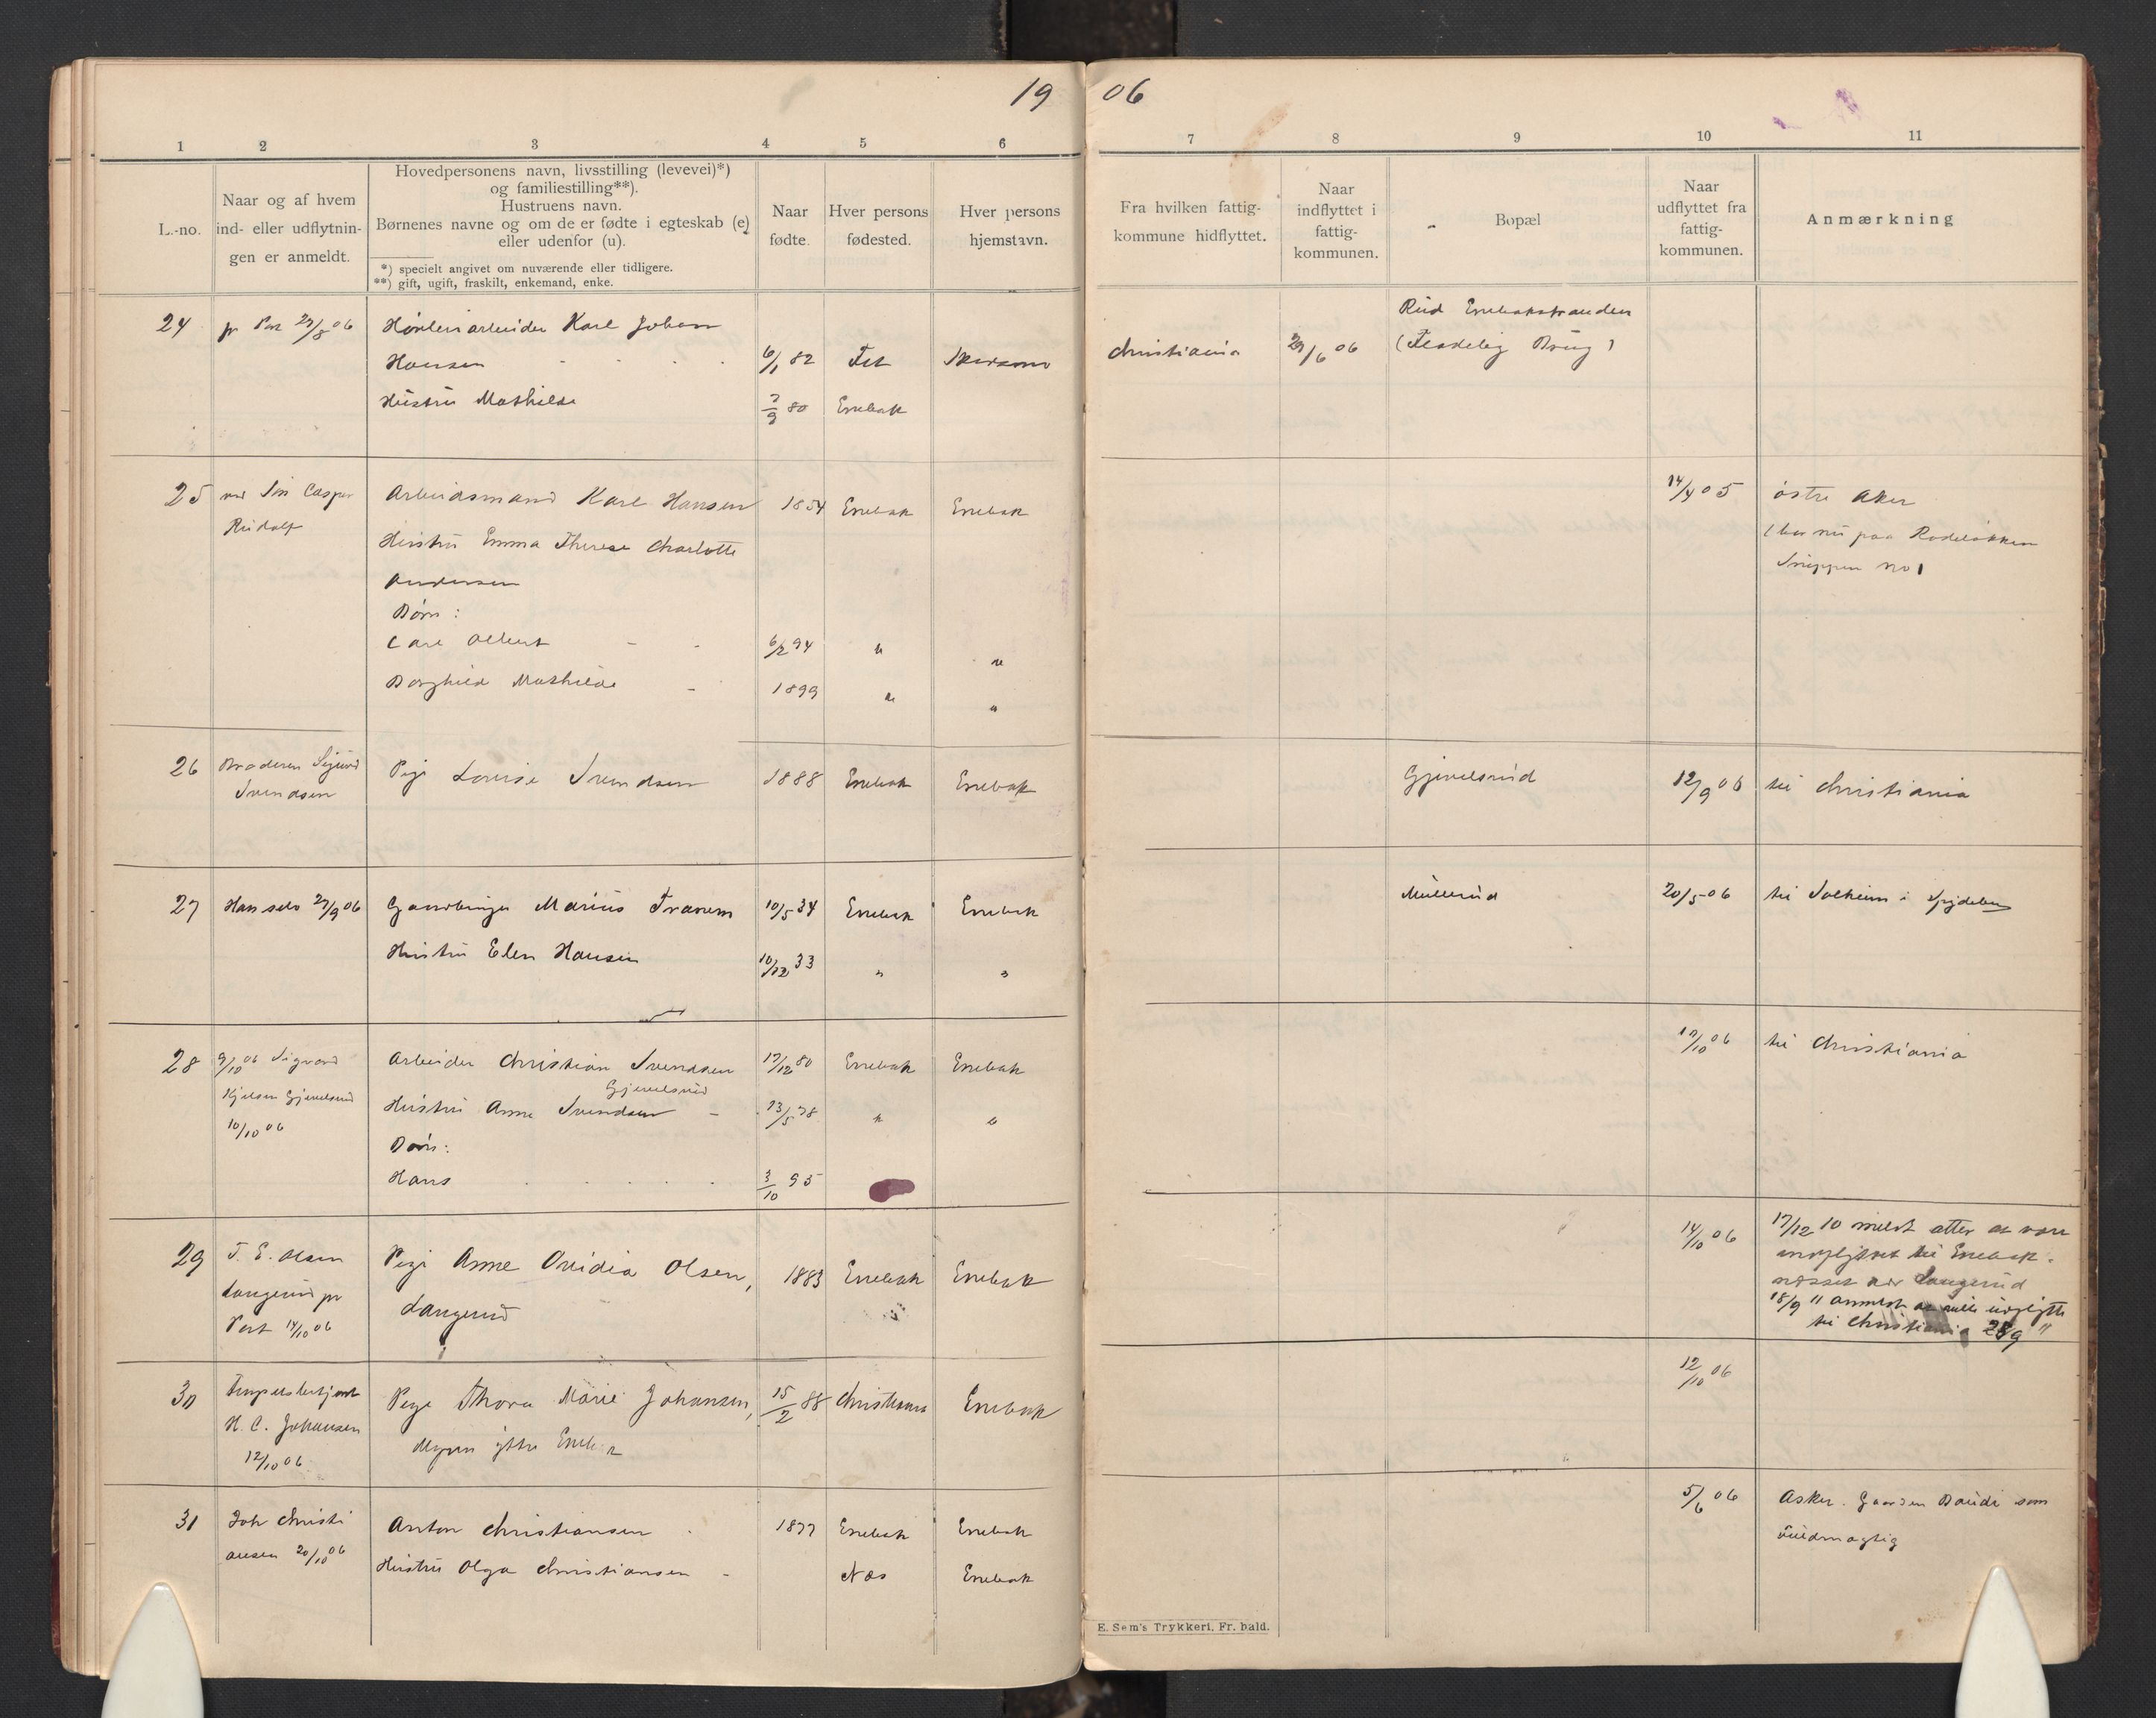 19 06
1 2 3 4 5 6 7 8 9 10 11
L.-no.
Naar og af hvem
ind- eller udflytnin-
gen er anmeldt.
Hovedpersonens navn, livsstilling (levevei)*)
og familiestilling**).
Hustruens navn.
Børnenes navne og om de er fødte i egteskab (e)
eller udenfor (u).
*) specielt angivet om nuværende eller tidligere.
**) gift, ugift, fraskilt, enkemand, enke.
Naar
fødte.
Hver persons
fødested.
Hver persons
hjemstavn.
Fra hvilken fattig-
kommune hidflyttet.
Naar
indflyttet i
fattig-
kommunen.
Bopæl
Naar
udflyttet fra
fattig-
kommunen.
Anmærkning
24 pr Post Karl Johan
Hansen 6/1 82 Fet Christiania 29/6 06
Rud Enebakstranden
Hustru Mathilde 80 Enebak
25 ved Søn Casper
Rudolf
Arbeidsmand Karl Hansen 1854 Enebak Enebak 14/4 05 østre Aker
Hustru Emma Therese Charlotte
Andersen
(bor nu paa Rodeløkken
no 1
Børn:
Carl Albert - - 6/2 94 " "
Borghild Mathilde - 1899 " "
26 Broderen Sigurd
Svendsen
Pige Lovise Svendsen 1888 Enebak Enebak Gjevelsrud 12/9 06 til Christiania
27 Han selv 27/9 06 Gaardbruger Marius Tranem 10/5 34 Enebak Enebak 20/5 06 til Solheim i Spydeberg
Hustru Elen Hansen 10/12 33 " "
28 9/10 06 Sigvard
Gjevelsrud
10/10 06
Arbeider Christian Svendsen 17/12 80 Enebak Enebak 17/10 06 til Christiania
Gjevelsrud
Hustru Anne Svendsen - 78 " "
Børn:
Hans 3/10 95
29 T. E. Olsen
Langerud pr
Post 14/10 06
Pige Anne Ovidia Olsen, 1883 Enebak Enebak 14/10 06
Langerud
17/12 10 meldt atter at være
indflyttet til Enebak.
næsset ved Langerud
18/9 11 anmeldt at ville udflytte
til Christiania 28/9 11
30
H. C. Johansen
12/10 06
Pige Thora Marie Johansen, 15/2 88 Christiania Enebak 12/10 06
ytre Enebak
31 Joh Christi
ansen 20/10 06
Anton Christiansen 1877 Enebak Enebak 5/6 06 Asker. Gaarden som
Hustru Olga Christiansen - Næs Enebak
E. Sem's Trykkeri, Fr. hald.